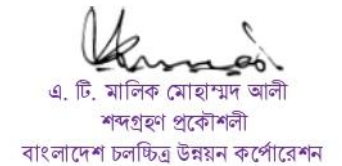 এ. টি. মালিক মোহাম্মদ আলী
শব্দগ্রহণ প্রকৌশলী
বাংলাদেশ চলচ্চিত্র উন্নয়ন কর্পোরেশন